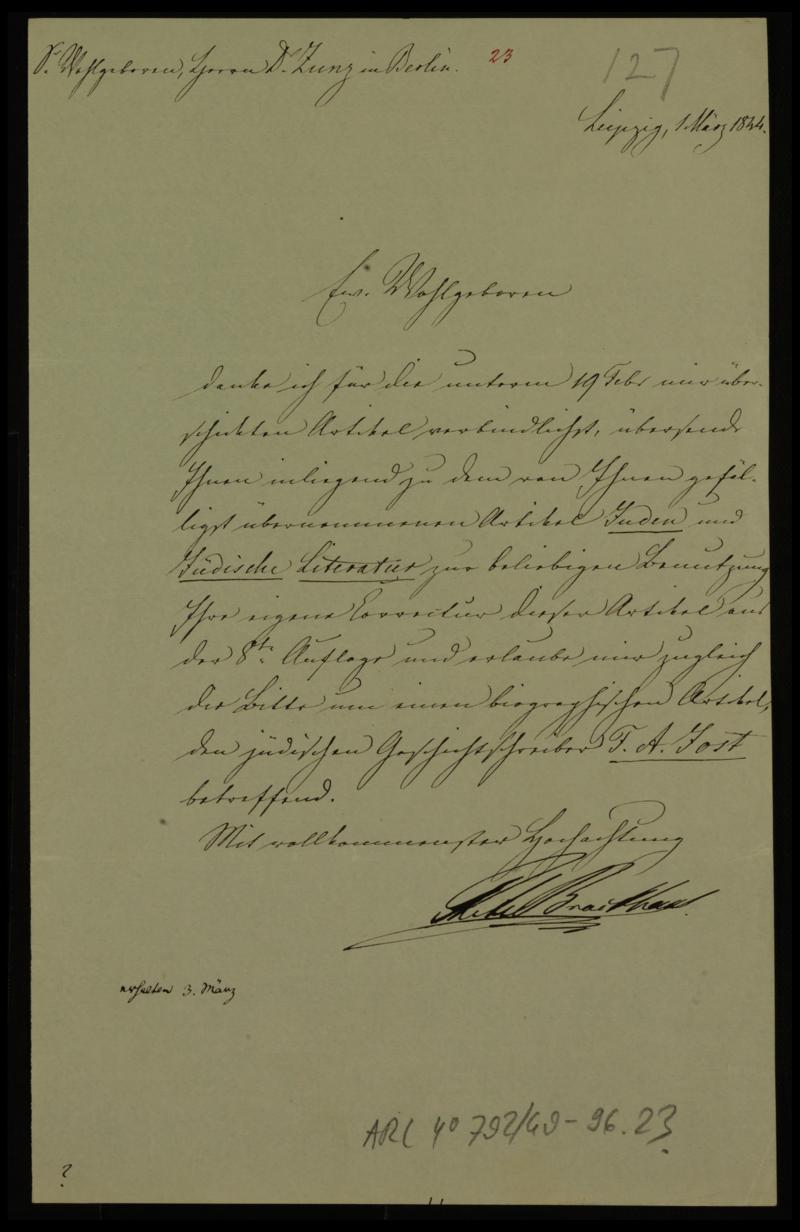 Sr. Wohlgeboren, Herrn Dr. Zunz in Berlin.
23
127
Leipzig, 1 März 1844.
Ew. Wohlgeboren
danke ich für die unterm 19 Febr mir über-
schickten Artikel verbindlichst, übersende
Ihnen inliegend zu dem von Ihnen gefäl-
ligst übernommenen Artikel Juden und
Jüdische Literatur zur beliebigen Benutzung
Ihre eigene Correctur dieser Artikel aus
der 8te. Auflage und erlaube mir zugleich
die Bitte um einen biographischen Artikel,
den jüdischen Geschichtschreiber T. A. Jost
betreffend.
Mit vollkommenster Hochachtung
Brockhaus.
erhalten 3. März
ARC 4° 792/G9-96.23
?